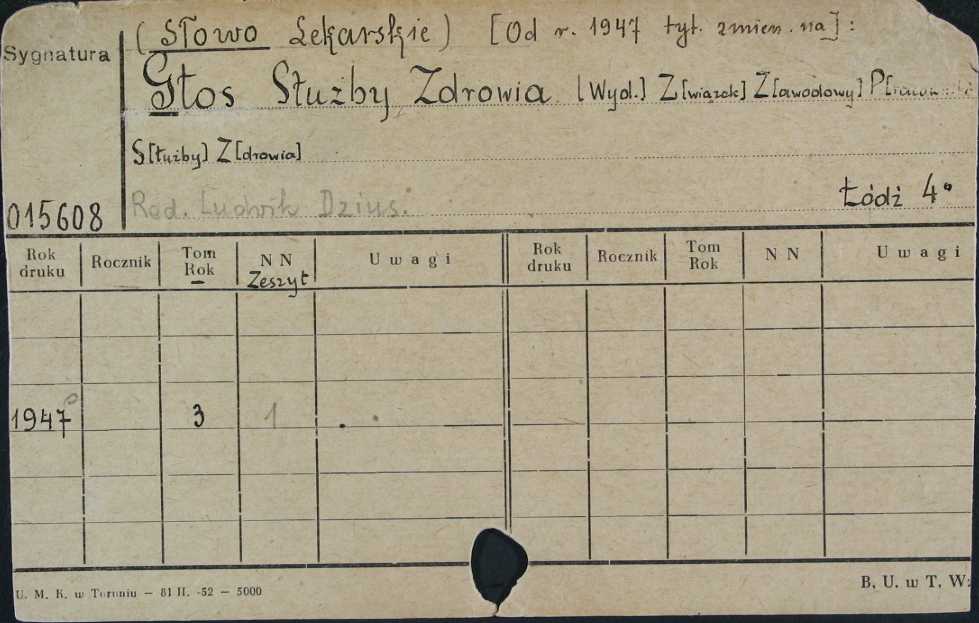 (Słowo Lekarskie) [Od r. 1947 tyt. zmien. na]:
Sygnatura
Głos Służby Zdrowia [Wyd.] Z[wiązek] Z[awodowy]
S[łużby] Z[drowia]
015608
Red. Ludwik Dzius.
Łódź 4°
Rok druku Rocznik Tom Rok N N Zeszyt Uwagi Rok druku Rocznik Tom Rok N N Uwagi
1947 3 1
U. M. K. w Toruniu — 81 II. -52 — 5000
B. U. w T. W: